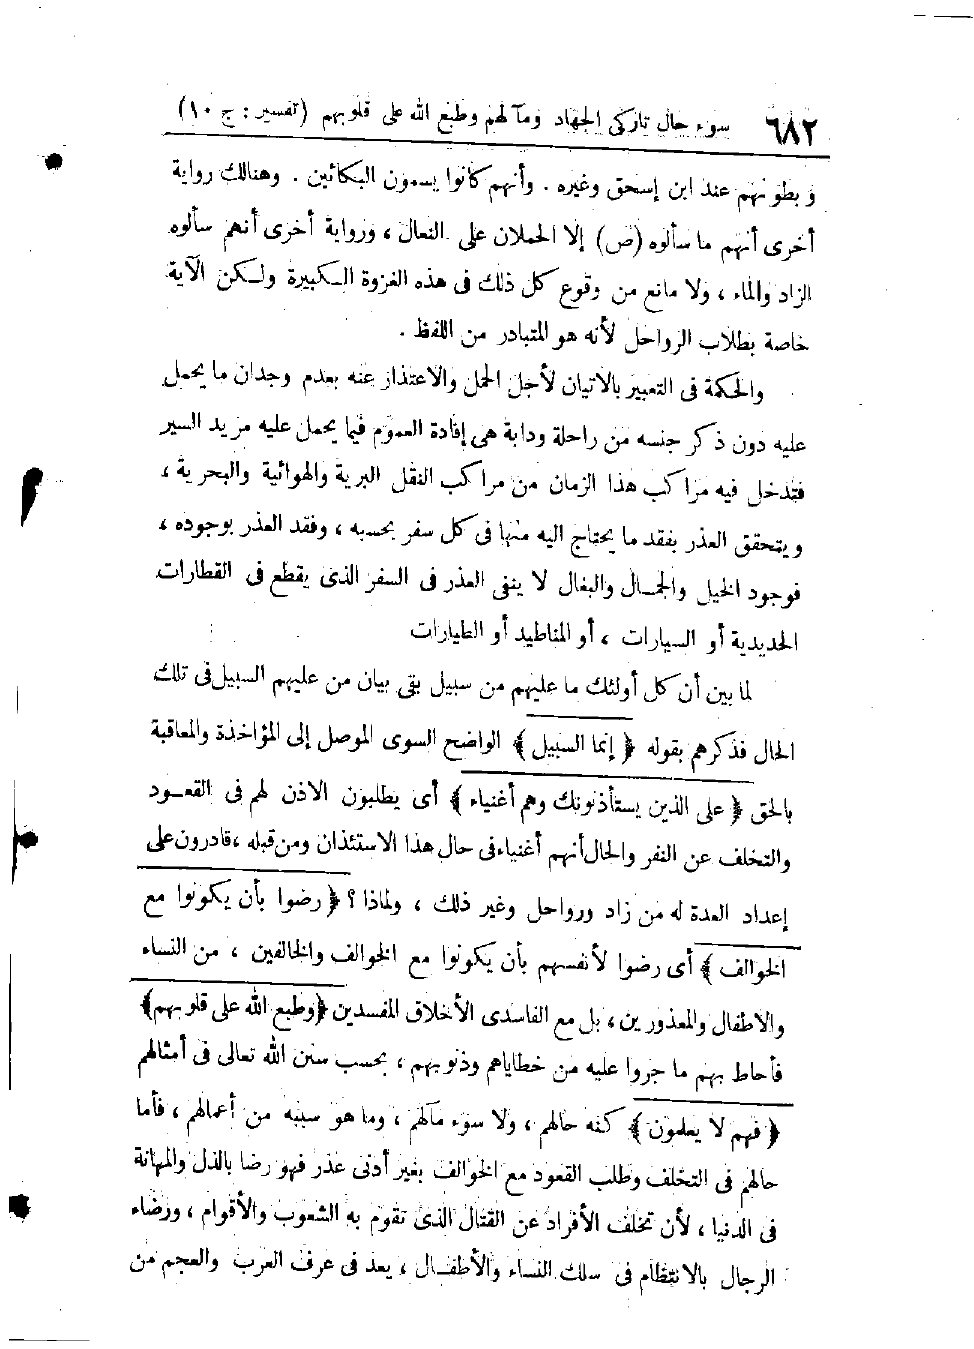 ٦٨٢ سوء حال تاركى الجهاد ومآلهم وطبع الله على قلوبهم (تفسير : ج ١٠)
وبطونهم عند ابن إسحق وغيره . وأنهم كانوا يسمون البكائين . وهنالك رواية
أخرى أنهم ما سألوه (ص) إلا الحملان على النعال ، ورواية أخرى أنهم سألوه
الزاد والماء ، ولا مانع من وقوع كل ذلك فى هذه الغزوة الكبيرة ولكن الآية
خاصة بطلاب الرواحل لأنه هو المتبادر من اللفظ .
والحكمة فى التعبير بالاتيان لأجل الحمل والاعتذار عنه بعدم وجدان ما يحمل
عليه دون ذكر جنسه من راحلة ودابة هى إفادة العموم فيما يحمل عليه مريد السير
فتدخل فيه مراكب هذا الزمان من مراكب النقل البرية والهوائية والبحرية ،
ويتحقق العذر بفقد ما يحتاج اليه منها فى كل سفر بحسبه ، وفقد العذر بوجوده ،
فوجود الخيل والجمال والبغال لا ينفى العذر فى السفر الذى يقطع فى القطارات
الحديدية أو السيارات ، أو المناطيد أو الطيارات
لما بين أن كل أولئك ما عليهم من سبيل بقى بيان من عليهم السبيل فى تلك
الحال فذكرهم بقوله ﴿ إنما السبيل ﴾ الواضح السوى الموصل إلى المؤاخذة والمعاقبة
بالحق ﴿ على الذين يستأذنونك وهم أغنياء ﴾ أى يطلبون الاذن لهم فى القعود
والتخلف عن النفر والحال أنهم أغنياء فى حال هذا الاستئذان ومن قبله ، قادرون على
إعداد العدة له من زاد ورواحل وغير ذلك ، ولماذا ؟ ﴿ رضوا بأن يكونوا مع
الخوالف ﴾ أى رضوا لأنفسهم بأن يكونوا مع الخوالف والخالفين ، من النساء
والاطفال والمعذورين ، بل مع الفاسدى الأخلاق المفسدين ﴿ وطبع الله على قلوبهم ﴾
فأحاط بهم ما جروا عليه من خطاياهم وذنوبهم ، بحسب سنن الله تعالى فى أمثالهم
﴿ فهم لا يعلمون ﴾ كنه حالهم ، ولا سوء مآلهم ، وما هو سببه من أعمالهم ، فأما
حالهم فى التخلف وطلب القعود مع الخوالف بغير أدنى عذر فهو رضا بالذل والمهانة
فى الدنيا ، لأن تخلف الأفراد عن القتال الذى تقوم به الشعوب والأقوام ، ورضاء
الرجال بالانتظام فى سلك النساء والأطفال ، يعد فى عرف العرب والعجم من